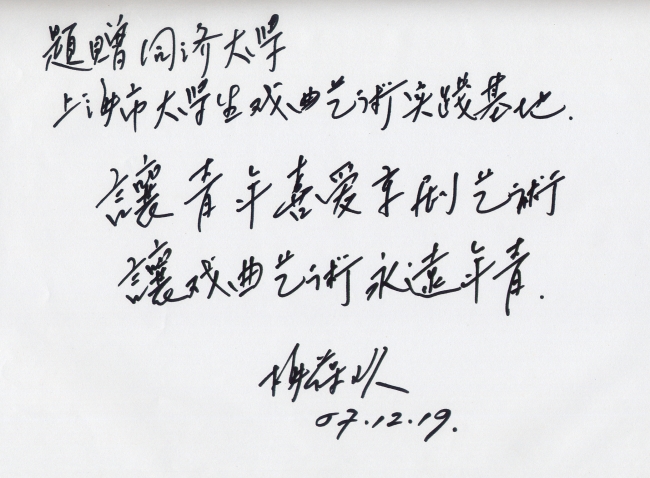 題贈同济大学
上海市大学生戏曲艺術实践基地.
讓青年喜爱京剧艺術
讓戏曲艺術永遠年青.
梅葆玖
07.12.19.